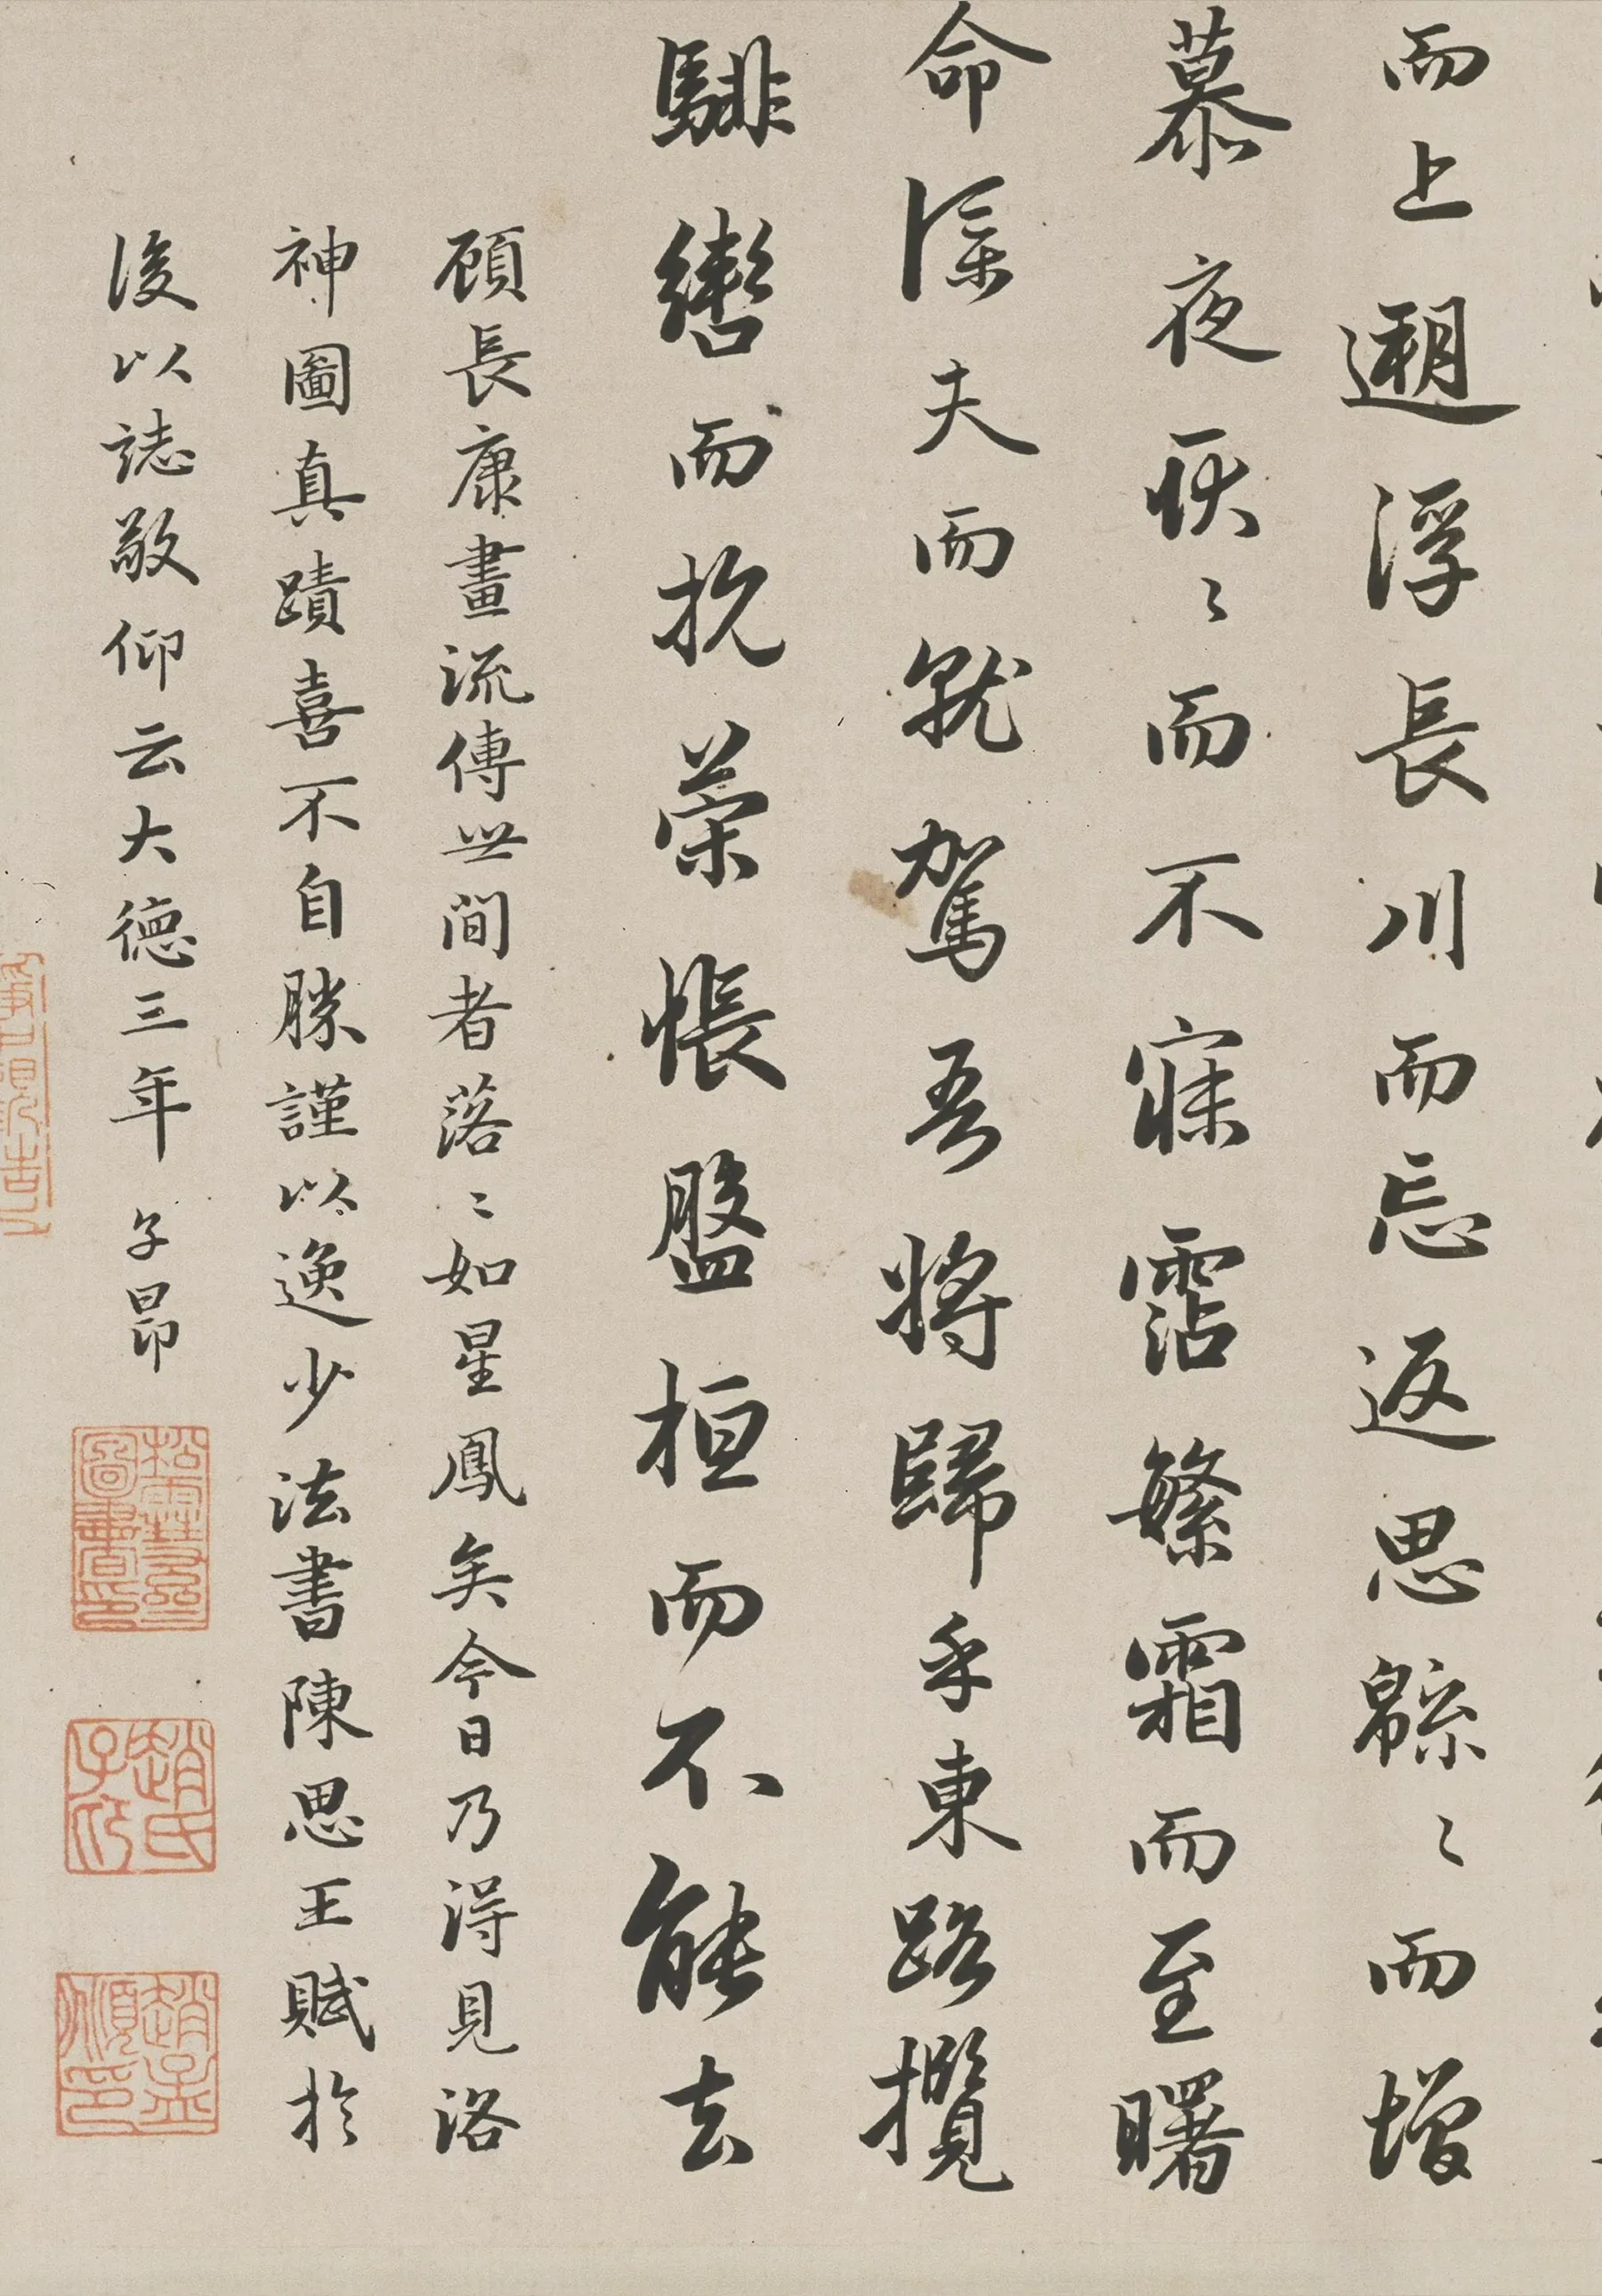 而上遡浮長川而忘返思緜〻而增
慕夜耿〻而不寐霑繁霜而至曙
命僕夫而就駕吾將歸乎東路攬
騑轡而抗策悵盤桓而不能去
顧長康畫流傳世間者落〻如星鳳矣今日乃得見洛
神圖真蹟喜不自勝謹以逸少法書陳思王賦於
後以誌敬仰云大德三年 子昂
松雪齋圖書印
趙氏子昂
趙孟頫印